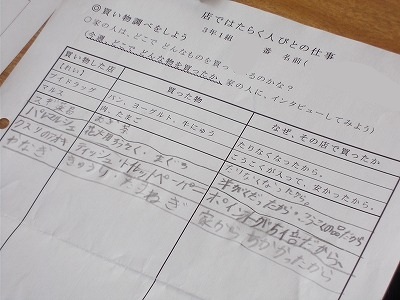 店ではたらく人びとの仕事
3年1組　番　名前(
◎買い物調べをしよう
家の人は、どこで どんなものを買っ　るのかな？
(今週、どこで、どんな物を買ったか、家の人に、インタビューしてみよう)
買い物した店　買った物　なぜ、その店で買ったか
【れい】
ツイドラッグ　パン、ヨーグルト、牛にゅう　たりなくなったから。
マルス　肉、たまご　こうこくが入って、安かったから。
たりなくなったから。
まぐろ　半がくだったから・
ティッシュ・トイレットペーパー　ポイントが5倍だから、
やなぎ　きゅうり・　ねぎ　家から ちかかったから